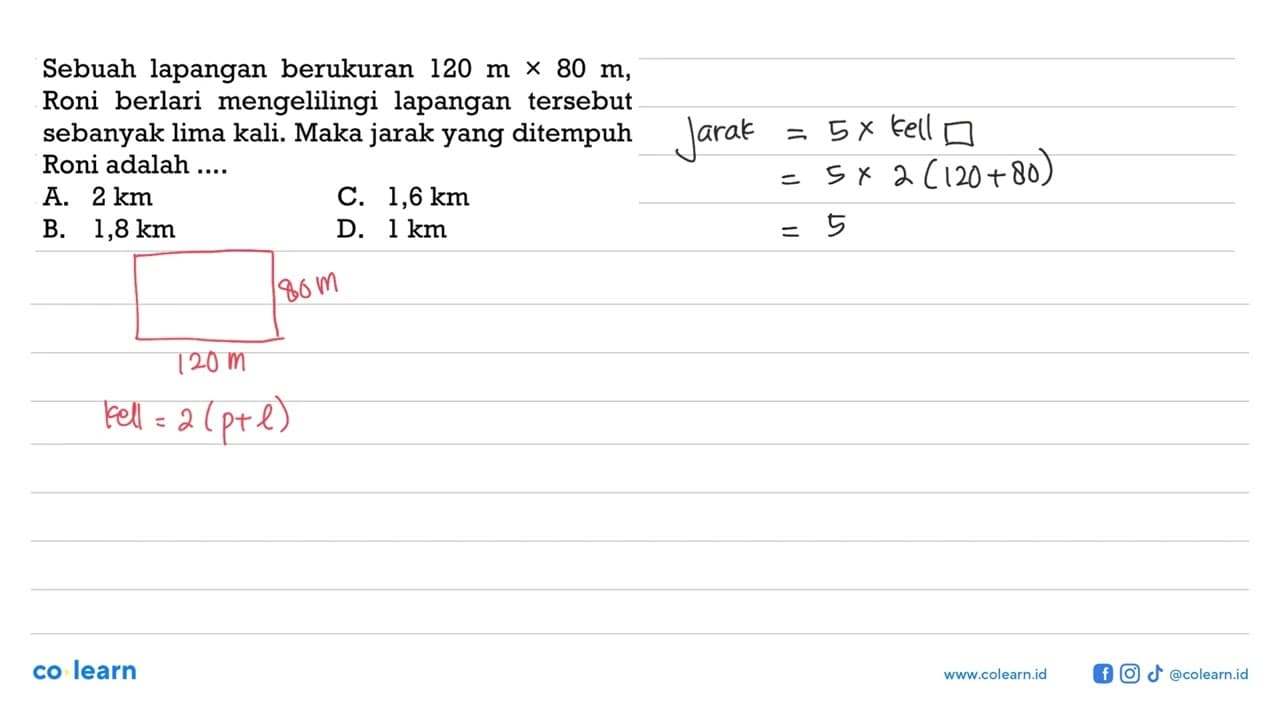 Sebuah lapangan berukuran 120 m × 80 m,
Roni berlari mengelilingi lapangan tersebut
sebanyak lima kali. Maka jarak yang ditempuh
Roni adalah ....
A. 2 km C. 1,6 km
B. 1,8 km D. 1 km
80 m
120 m
kell = 2 (p+l)
Jarak = 5 × kell □
= 5 × 2 (120+80)
= 5
co learn
www.colearn.id @colearn.id